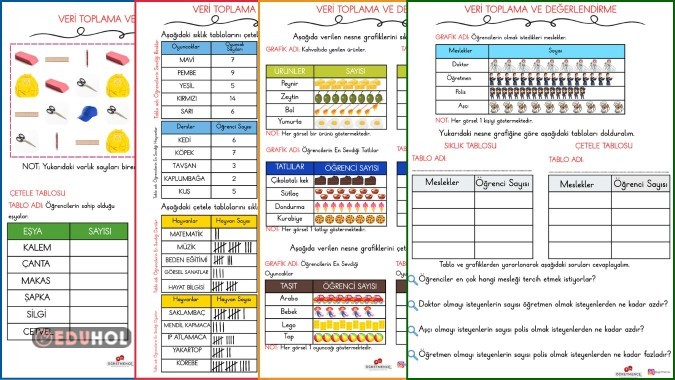 VERİ TOPLAMA VE
NOT: Yukarıdaki varlık sayıları
ÇETELE TABLOSU
TABLO ADI: Öğrencilerin sahip olduğu
eşyalar.
EŞYA SAYISI
KALEM
ÇANTA
MAKAS
ŞAPKA
SİLGİ
CETVEL
EDUHOL
VERİ TOPLAMA V
Aşağıdaki sıklık tablolarını çetele
Oyuncaklar Oyuncak Sayıları
MAVİ 7
PEMBE 9
YEŞİL 5
KIRMIZI 14
SARI 6
Dersler Öğrenci Sayısı
KEDİ 6
KÖPEK 7
TAVŞAN 3
KAPLUMBAĞA 2
KUŞ 5
Aşağıdaki çetele tablolarını
Hayvanlar Hayvan Sayısı
MATEMATİK
MÜZİK
BEDEN EĞİTİMİ
GÖRSEL SANATLAR
HAYAT BİLGİSİ
Hayvanlar Hayvan Sayısı
SAKLAMBAÇ
MENDİL KAPMACA
İP ATLAMACA
YAKARTOP
KÖREBE
VERİ TOPLAMA VE
Aşağıda verilen nesne grafiklerini
GRAFİK ADI: Kahvaltıda yenilen ürünler.
ÜRÜNLER SAYISI
Peynir
Zeytin
Bal
Yumurta
NOT: Her görsel bir ürünü göstermektedir.
GRAFİK ADI: Öğrencilerin En Sevdiği Tatlılar
TATLILAR ÖĞRENCİ SAYISI
Çikolatalı kek
Sütlaç
Dondurma
Kurabiye
NOT: Her görsel 1 öğrenciyi göstermektedir.
Aşağıda verilen nesne grafiklerini
GRAFİK ADI: Öğrencilerin En Sevdiği
TAŞIT ÖĞRENCİ SAYISI
Araba
Bebek
Lego
Top
NOT: Her görsel 1 oyuncağı göstermektedir.
VERİ TOPLAMA VE DEĞERLENDİRME
GRAFİK ADI: Öğrencilerin olmak istedikleri meslekler.
Meslekler Sayısı
Doktor
Öğretmen
Polis
Aşçı
NOT: Her görsel 1 kişiyi göstermektedir.
Yukarıdaki nesne grafiğine göre aşağıdaki tabloları dolduralım.
SIKLIK TABLOSU ÇETELE TABLOSU
TABLO ADI: TABLO ADI:
Meslekler Öğrenci Sayısı Meslekler Öğrenci Sayısı
Tablo ve grafiklerden yararlanarak aşağıdaki soruları cevaplayalım.
Öğrenciler en çok hangi mesleği tercih etmek istiyorlar?
Doktor olmayı isteyenlerin sayısı öğretmen olmak isteyenlerden ne kadar azdır?
Aşçı olmayı isteyenlerin sayısı polis olmak isteyenlerden ne kadar azdır?
Öğretmen olmayı isteyenlerin sayısı polis olmak isteyenlerden ne kadar fazladır?